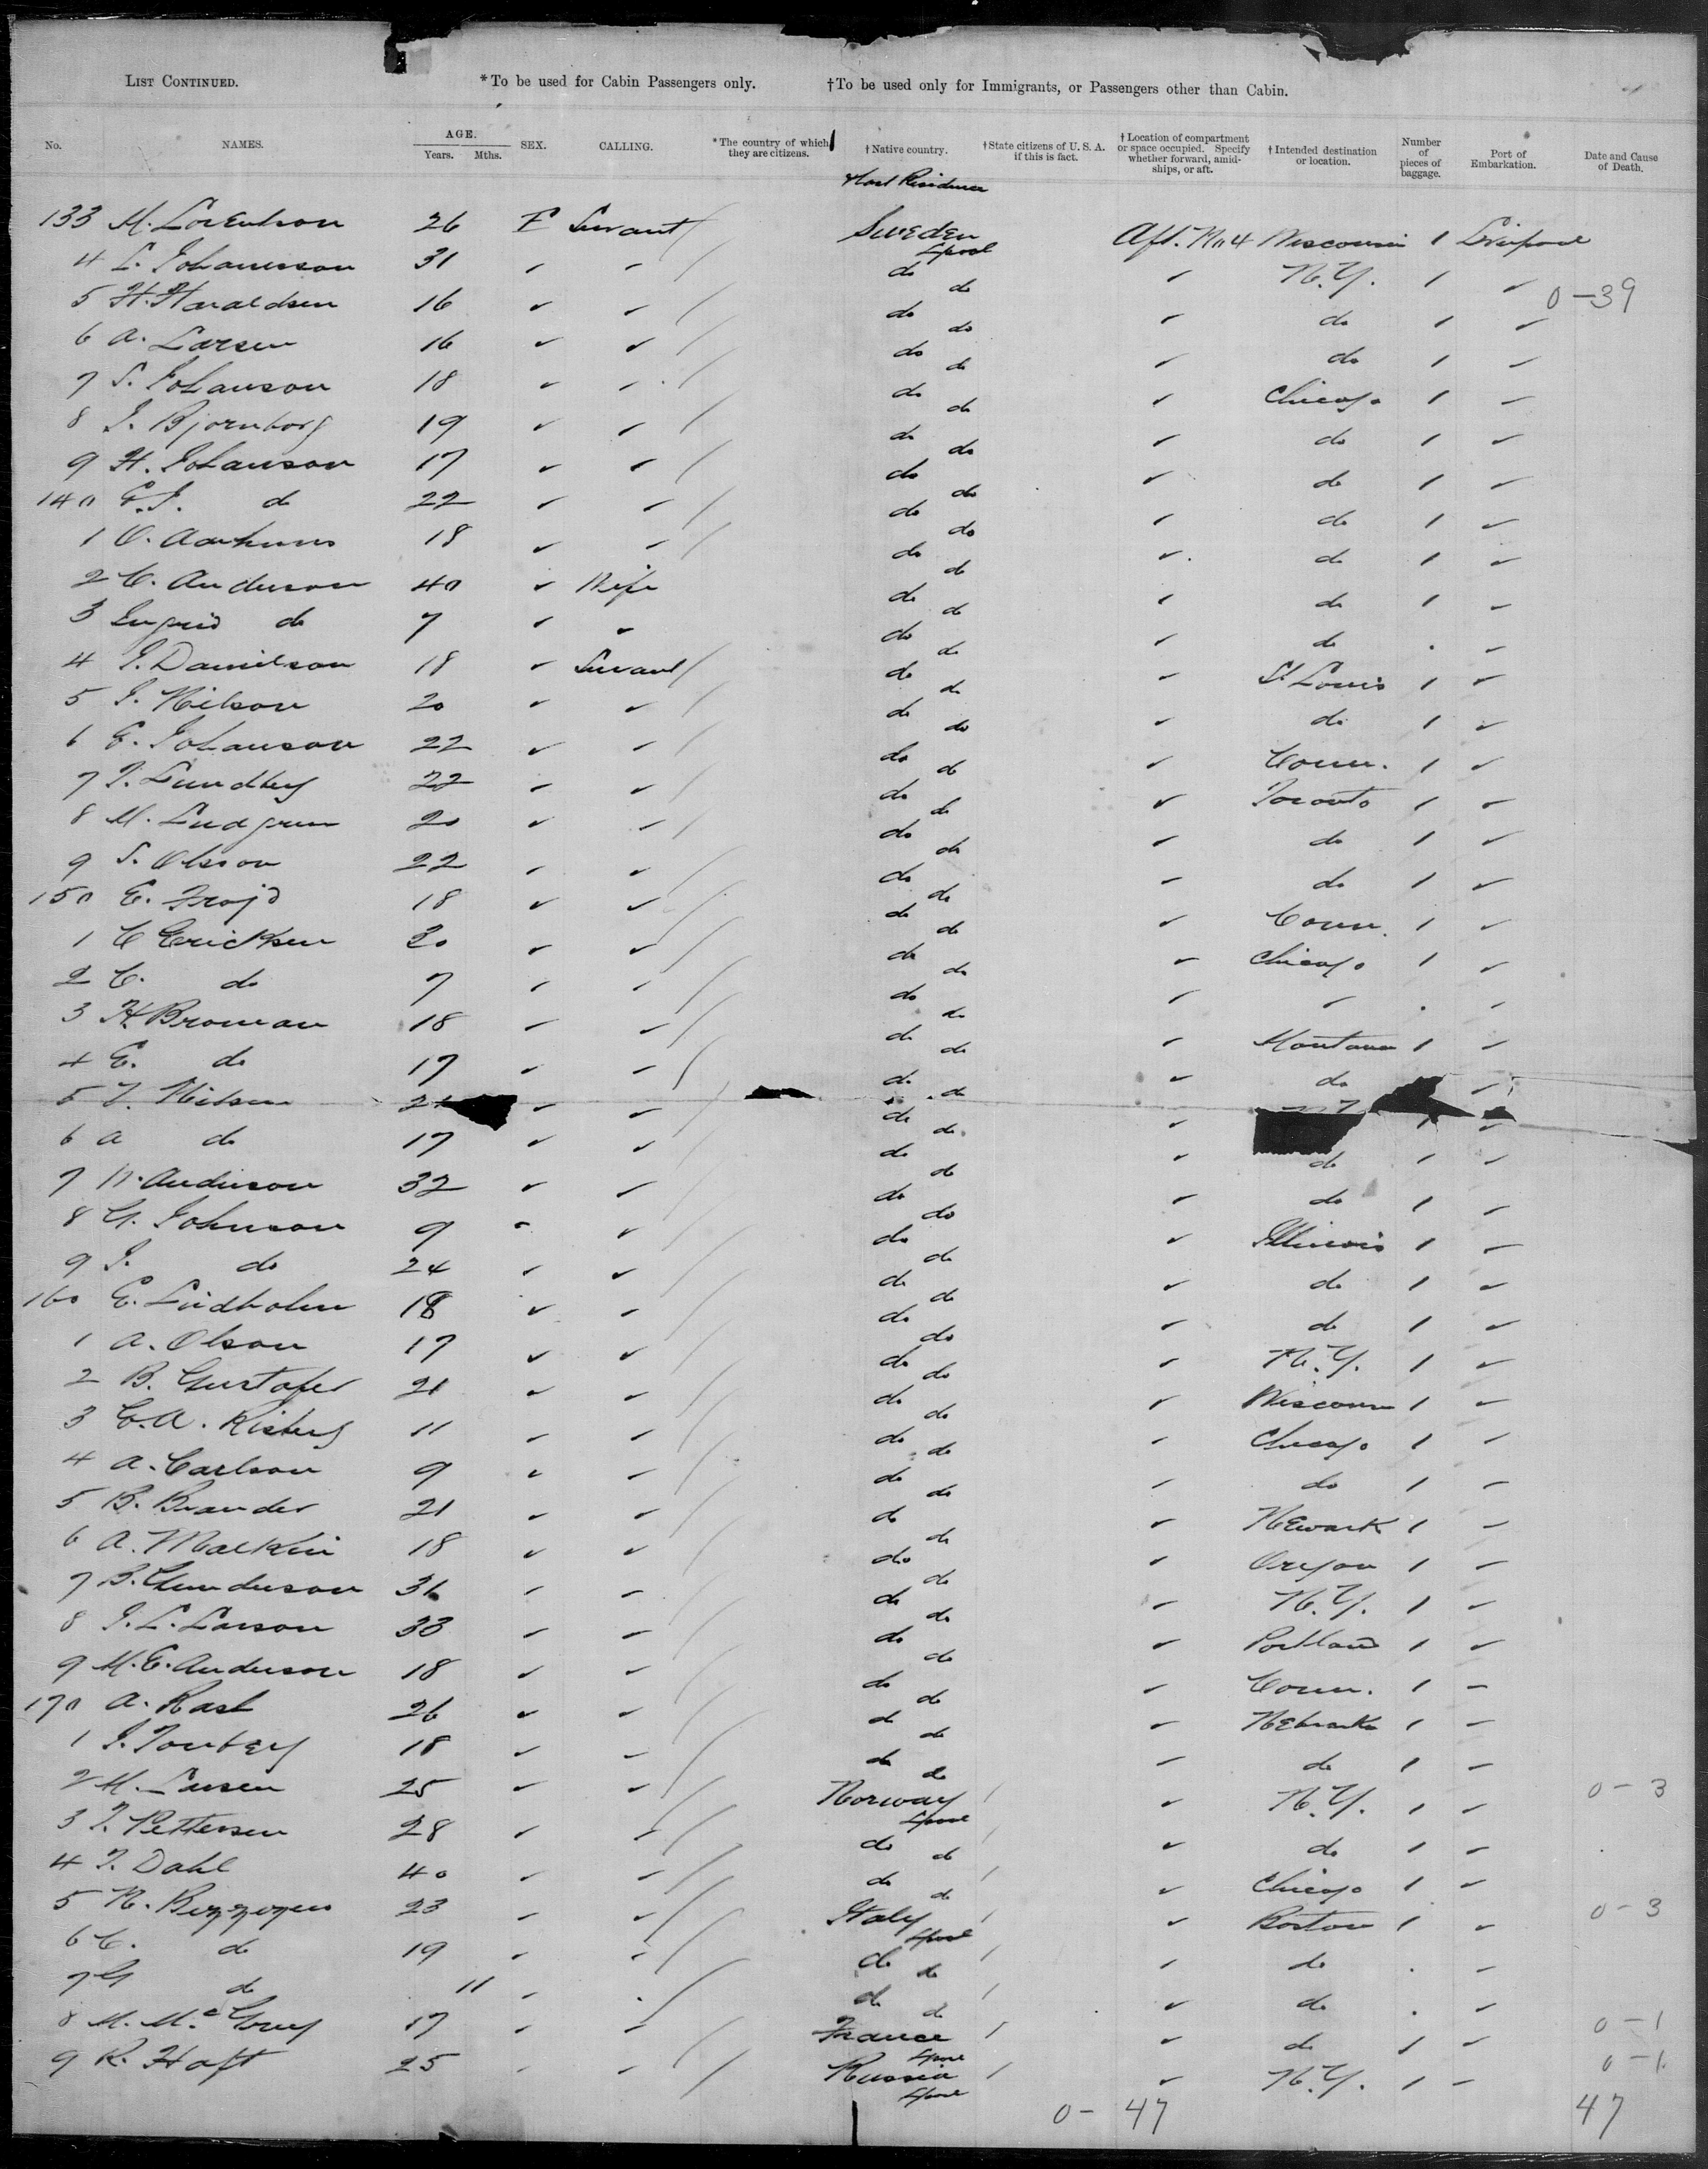 LIST CONTINUED. *To be used for Cabin Passengers only. †To be used only for Immigrants, or Passengers other than Cabin.
No. NAMES. AGE. Years. Mths. SEX. CALLING. *The country of which they are citizens. †Native country. †State citizens of U. S. A. if this is fact. †Location of compartment or space occupied. Specify whether forward, amidships, or aft. †Intended destination or location. Number of pieces of baggage. Port of Embarkation. Date and Cause of Death.
Last Residence
133 M. Lorentson 26 F Servant Sweden Lpool Aft. No 4 Wisconsin 1 Liverpool
4 L. Johansson 31 ✓ ✓ do do ✓ N.Y. 1 ✓ 0-39
5 H. Haraldsen 16 ✓ ✓ do do ✓ do 1 ✓
6 A. Larsen 16 ✓ ✓ do do ✓ do 1 ✓
7 S. Johanson 18 ✓ ✓ do do ✓ Chicago 1 ✓
8 J. Bjornborg 19 ✓ ✓ do do ✓ do 1 ✓
9 H. Johanson 17 ✓ ✓ do do ✓ do 1 ✓
140 E.J. do 22 ✓ ✓ do do ✓ do 1 ✓
1 O. 18 ✓ ✓ do do ✓ do 1 ✓
2 C. Anderson 40 ✓ Wife do do ✓ do 1 ✓
3 Ingrid do 7 ✓ ✓ do do ✓ do . ✓
4 J. Danielson 18 ✓ Servant do do ✓ St Louis 1 ✓
5 J. Nilson 20 ✓ ✓ do do ✓ do 1 ✓
6 E. Johanson 22 ✓ ✓ do do ✓ Conn. 1 ✓
7 T. Lundberg 22 ✓ ✓ do do ✓ Toronto 1 ✓
8 M. 20 ✓ ✓ do do ✓ do 1 ✓
9 S. Olsson 22 ✓ ✓ do do ✓ do 1 ✓
150 E. Frojd 18 ✓ ✓ do do ✓ Conn. 1 ✓
1 C Ericksen 20 ✓ ✓ do do ✓ Chicago 1 ✓
2 C. do 7 ✓ ✓ do do ✓ ✓ . ✓
3 H Broman 18 ✓ ✓ do do ✓ Montana 1 ✓
4 E. do 17 ✓ ✓ do do ✓ do ✓
5 Nilsen ✓ ✓ do do ✓ 1 ✓
6 A do 17 ✓ ✓ do do ✓ do 1 ✓
7 Anderson 32 ✓ ✓ do do ✓ do 1 ✓
8 G. Johnson 9 ✓ ✓ do do ✓ Illinois 1 ✓
9 J. do 24 ✓ ✓ do do ✓ do 1 ✓
160 E. Lindholm 18 ✓ ✓ do do ✓ do 1 ✓
1 A. Olson 17 ✓ ✓ do do ✓ N.Y. 1 ✓
2 B. 21 ✓ ✓ do do ✓ Wisconsin 1 ✓
3 C.A. Risberg 11 ✓ ✓ do do ✓ Chicago 1 ✓
4 A. Carlson 9 ✓ ✓ do do ✓ do 1 ✓
5 B. Brander 21 ✓ ✓ do do ✓ Newark 1 ✓
6 A. Malkin 18 ✓ ✓ do do ✓ Oregon 1 ✓
7 B. Gunderson 36 ✓ ✓ do do ✓ N.Y. 1 ✓
8 J.L. Larson 33 ✓ ✓ do do ✓ Portland 1 ✓
9 M.E. Anderson 18 ✓ ✓ do do ✓ Conn. 1 ✓
170 A. Rask 26 ✓ ✓ do do ✓ Nebraska 1 ✓
1 J. 18 ✓ ✓ do do ✓ do 1 ✓
2 M. Larsen 25 ✓ ✓ Norway Lpool ✓ N.Y. 1 ✓ 0-3
3 T. Pettersen 28 ✓ ✓ do do ✓ do 1 ✓
4 T. Dahl 40 ✓ ✓ do do ✓ Chicago 1 ✓
5 N. 23 ✓ ✓ Italy Lpool ✓ Boston 1 ✓ 0-3
6 C. do 19 ✓ ✓ do do ✓ do . ✓
7 G do 11 ✓ ✓ do do ✓ do . ✓
8 M. 17 ✓ ✓ France Lpool ✓ do 1 ✓ 0-1
9 R. Haft 25 ✓ ✓ Russia Lpool ✓ N.Y. 1 ✓ 0-1
0- 47 47